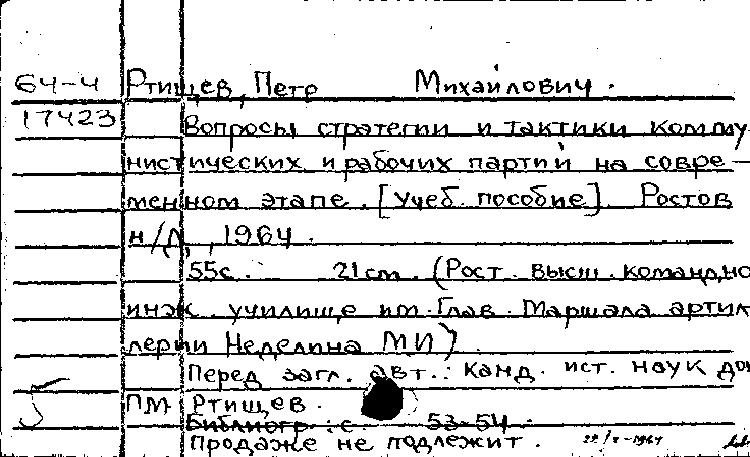 64-4 Ртищев, Петр Михайлович.
17423
Вопросы стратегии и тактики комму-
нистических и рабочих партий на совре-
менном этапе. [Учеб. пособие]. Ростов
н/Д, 1964.
55с. 21см. (Рост. высш. командно
инж. училище им. Глав. Маршала артил
лерии Неделина МИ)
Перед загл. авт.: канд. ист. наук доц
ПМ Ртищев.
Библиогр.: с. 53-54.
Продаже не подлежит.